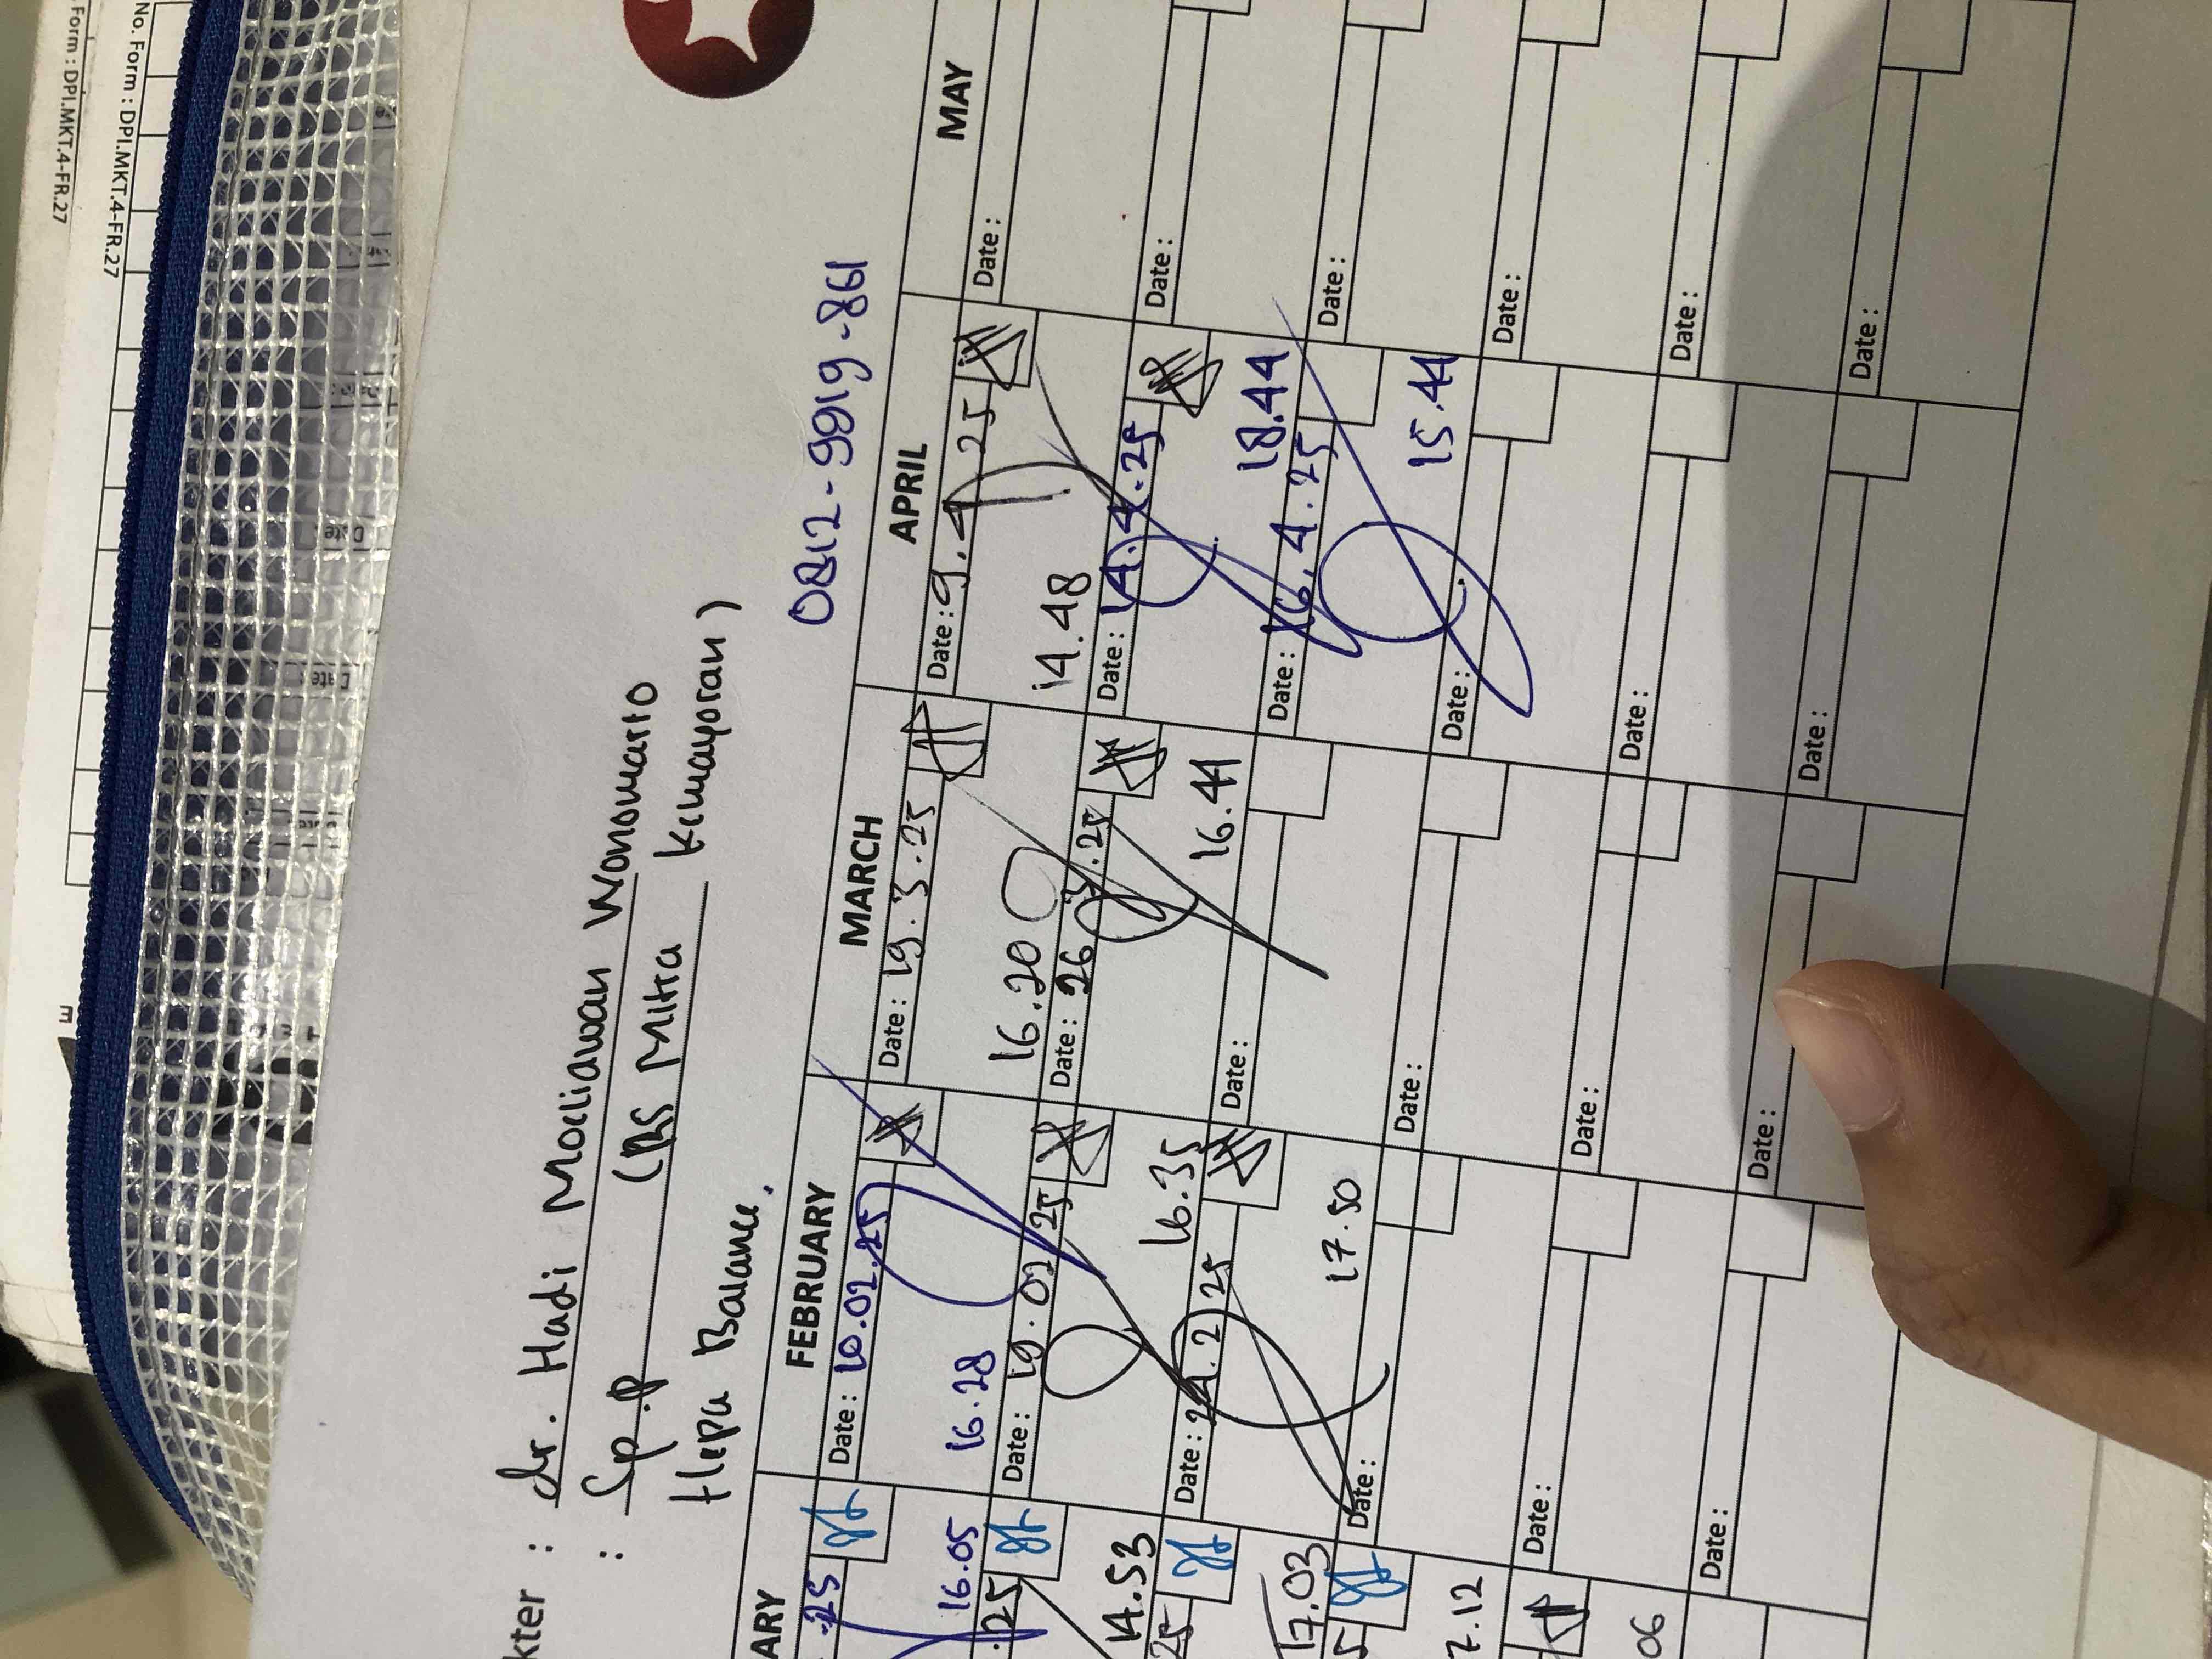 No. Form : DPI.MKT.4-FR.27
Form : DPI.MKT.4-FR.27
kter : dr. Hadi Mocliawan Wonomarto
: Sp.P (RS Mitra Kemayoran)
Hepa Balance.
0812-9919-861
ARY FEBRUARY MARCH APRIL MAY
.25 Date : 10.02.25 Date : 19.3.25 Date : 9.4 25 Date :
16.05 16.28 16.20 14.48
.25 Date : 19.02 25 Date : 26 3.25 Date : 14.4.25 Date :
14.53 16.35 16.41 18.44
25 Date : 24.2 25 Date : Date : 16.4.25 Date :
17.03 17.50 15.44
5 Date : Date : Date : Date :
7.12
Date : Date : Date : Date :
06
Date : Date : Date : Date :